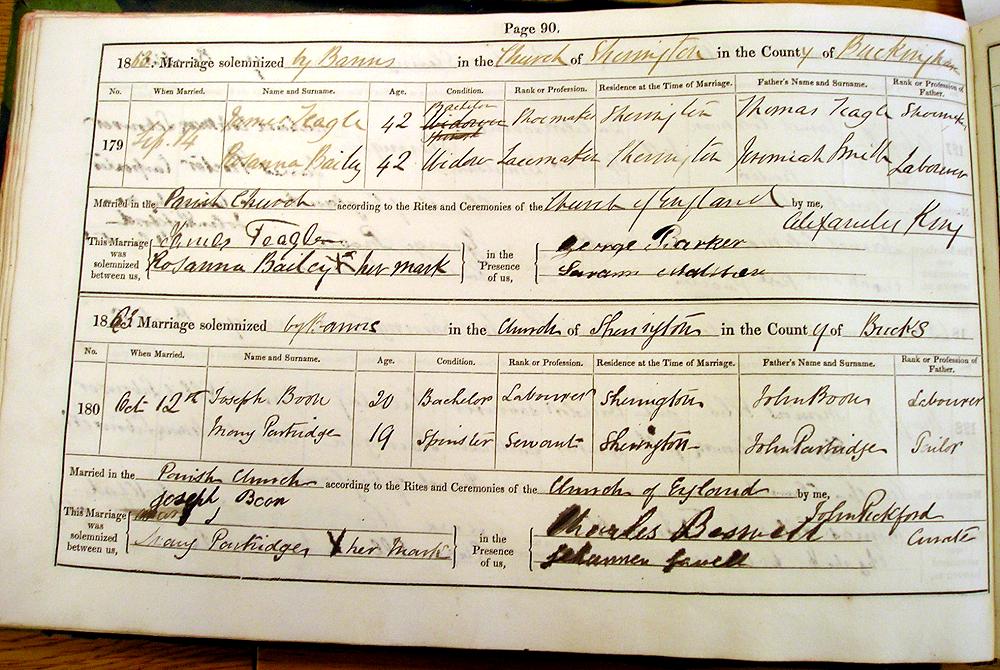 Page 90.
1863. Marriage solemnized by Banns in the Church of Sherington in the County of Buckingham
No. When Married. Name and Surname. Age. Condition. Rank or Profession. Residence at the Time of Marriage. Father's Name and Surname. Rank or Profession of Father.
179 Sep. 14 James Teagle 42 Bachelor Widower Shoemaker Sherington Thomas Teagle Shoemaker
Rosanna Baily 42 Widow Lacemaker Sherington Jeremiah Smith Labourer
Married in the Parish Church according to the Rites and Ceremonies of the Church of England by me, Alexander King
This Marriage was solemnized between us, James Teagle in the Presence of us, George Parker
Rosanna Bailey X her mark
1863 Marriage solemnized by Banns in the Church of Sherington in the County of Bucks
No. When Married. Name and Surname. Age. Condition. Rank or Profession. Residence at the Time of Marriage. Father's Name and Surname. Rank or Profession of Father.
180 Oct 12th Joseph Boon 20 Bachelor Labourer Sherington John Boon Labourer
Mary Partridge 19 Spinster Servant Sherington John Partridge Tailor
Married in the Parish Church according to the Rites and Ceremonies of the Church of England by me, John Pickford
Curate
This Marriage was solemnized between us, Joseph Boon in the Presence of us, Charles Boswell
Mary Partridge X her Mark